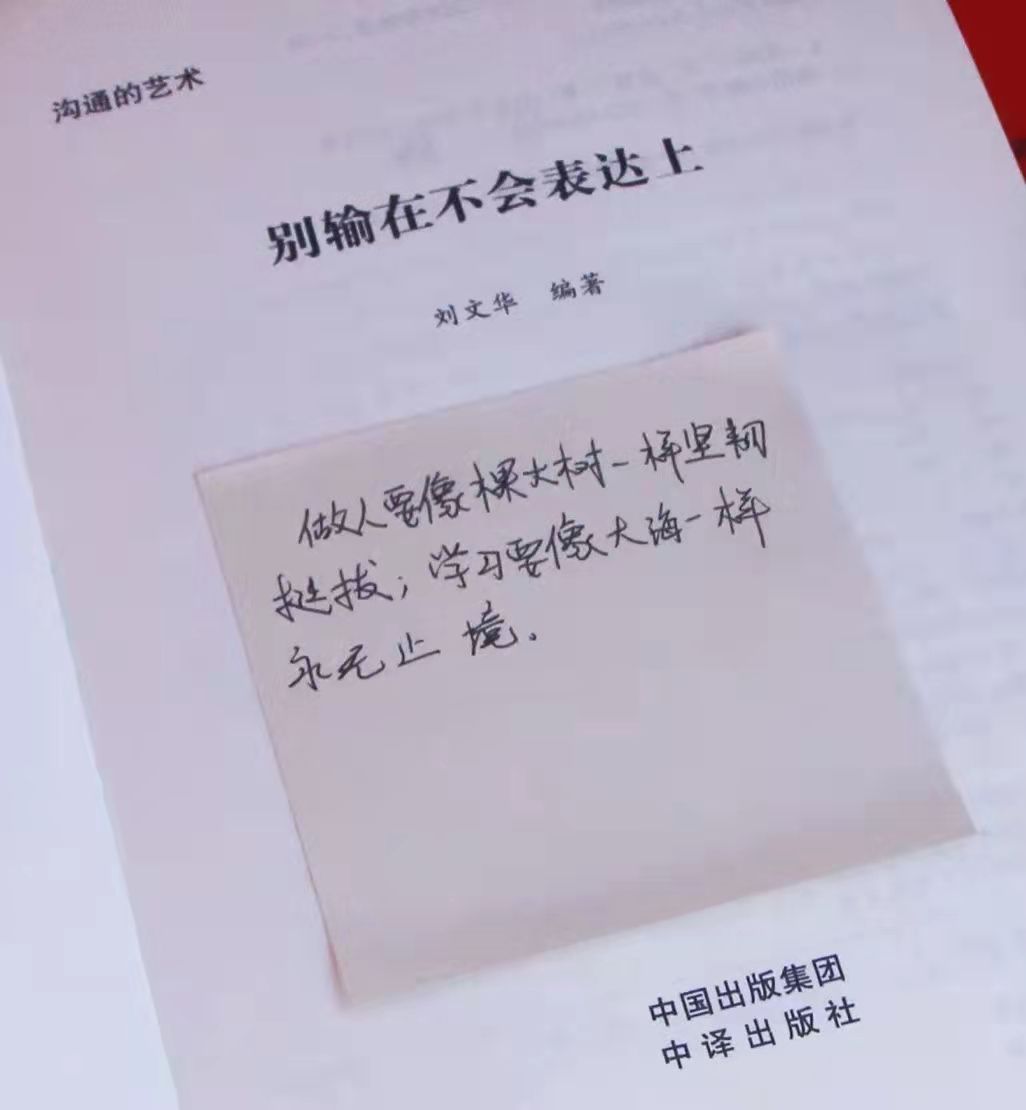 沟通的艺术
别输在不会表达上
刘文华 编著
做人要像棵大树一样坚韧
挺拔；学习要像大海一样
永无止境.
中国出版集团
中译出版社